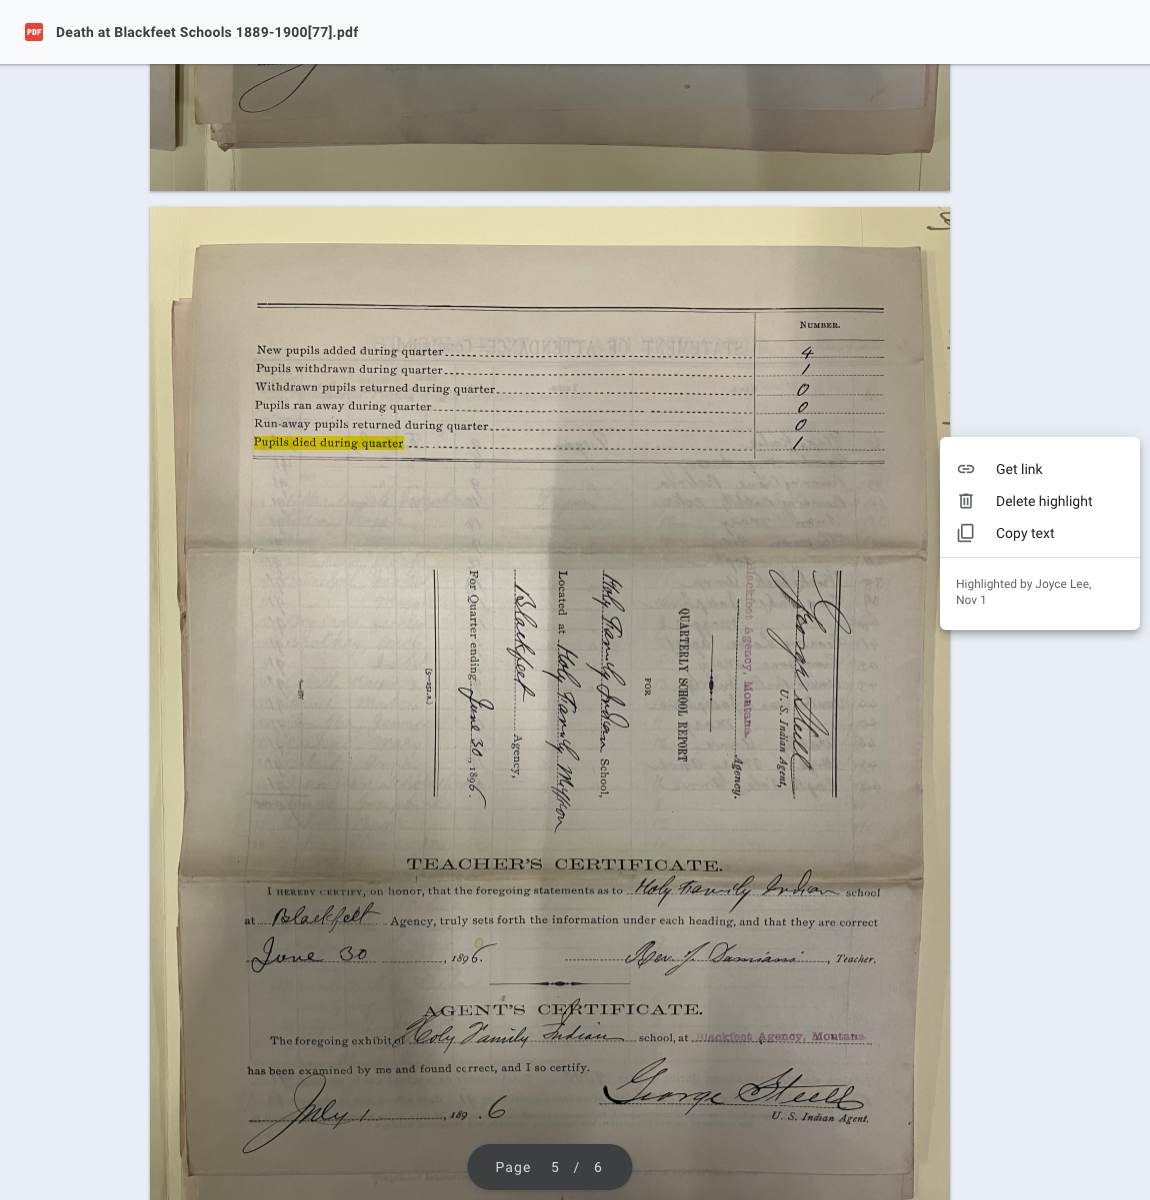 PDF
Death at Blackfeet Schools 1889-1900[77].pdf
NUMBER.
New pupils added during quarter 4
Pupils withdrawn during quarter 1
Withdrawn pupils returned during quarter 0
Pupils ran away during quarter 0
Run-away pupils returned during quarter 0
Pupils died during quarter 1
Get link
Delete highlight
Copy text
Highlighted by Joyce Lee,
Nov 1
(5—251.a.)
For Quarter ending June 30, 1896.
Blackfeet Agency,
Located at Holy Family Mission
Holy Family Indian School,
FOR
QUARTERLY SCHOOL REPORT
Blackfeet Agency, Montana. Agency.
U. S. Indian Agent,
George Steell
TEACHER'S CERTIFICATE.
I HEREBY CERTIFY, on honor, that the foregoing statements as to Holy Family Indian school
at Blackfeet Agency, truly sets forth the information under each heading, and that they are correct
June 30, 1896. Rev. J. Damiani, Teacher.
AGENT'S CERTIFICATE.
The foregoing exhibit of Holy Family Indian school, at Blackfeet Agency, Montana.
has been examined by me and found correct, and I so certify.
July 1, 189.6 George Steell
U. S. Indian Agent.
Page 5 / 6